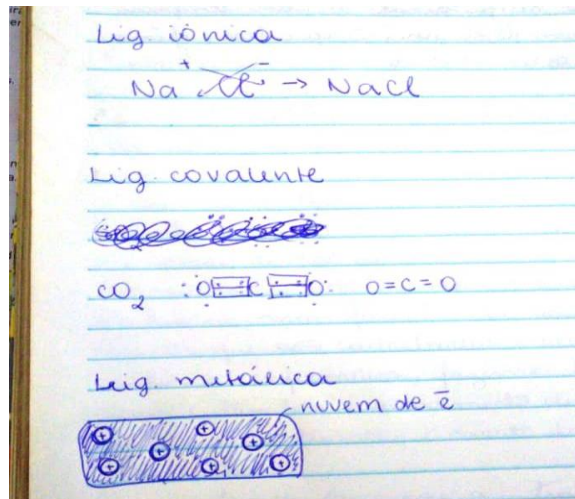 Lig. iônica
Na⁺ Cl⁻ → NaCl
Lig. covalente
CO₂ :O::C::O: O=C=O
Lig. metálica
nuvem de ē
+ + + + + + +